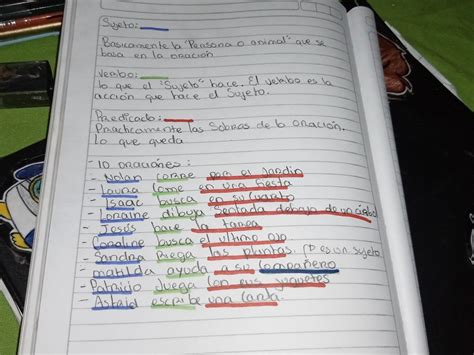 Sujeto:
Basicamente la "Persona o animal" que se
basa en la oración
Verbo:
lo que el "Sujeto" hace. El verbo es la
acción que hace el Sujeto.
Predicado:
Practicamente las Sobras de la oración.
lo que queda
- 10 oraciones:
- Nolan corre por el Jardin
- Laura come en una fiesta
- Isaac busca en su cuarto
- Loraine dibuja Sentada debajo de un árbol
- Jesús hace la tarea
- Coraline busca el ultimo ojo
- Sandra Riega las plantas. es un sujeto
- matilda ayuda a su compañero
- Patricio Juega con sus juguetes
- Astrid escribe una carta.